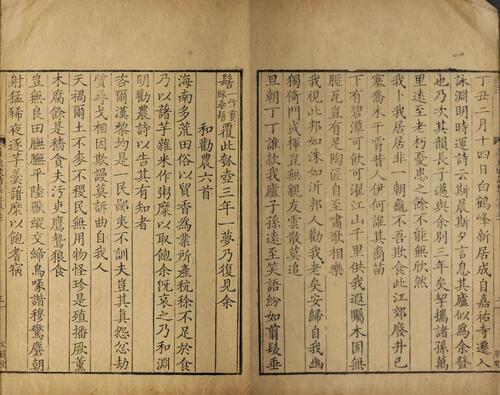 丁丑二月十四日白鶴峰新居成自嘉祐寺遷入
詠淵明時運詩云斯晨斯夕言息其廬似為余發
也乃次其韻長子邁與余別三年矣挈攜諸孫萬
里遠至老朽憂患之餘不能無欣然
我卜我居居非一朝龜不吾欺食此江郊廢井已
塞喬木干霄昔人伊何誰其裔苗
下有碧潭可飲可濯江山千里供我遐矚木固無
脛瓦豈有足陶匠自至嘯歌相樂
我視此邦如洙如沂邦人勸我老矣安歸自我幽
獨倚門或揮豈無親友雲散莫追
旦朝丁丁誰款我廬子孫遠至笑語紛如翦髮垂
髫一作剪綵垂髫覆此瓠壺三年一夢乃復見余
和勸農六首
海南多荒田俗以貿香為業所產秔稌不足於食
乃以藷芋雜米作粥糜以取飽余既哀之乃和淵
明勸農詩以告其有知者
咨爾漢黎均是一民鄙夷不訓夫豈其真怨忿劫
質尋戈相因欺謾莫訴曲自我人
天禍爾土不麥不稷民無用物怪珍是殖播厥薰
木腐餘是穡貪夫汚吏鷹鷙狼食
豈無良田膴膴平陸獸縱交締鳥喙諧穆驚麏朝
射猛豨夜逐芋羹藷糜以飽耆宿